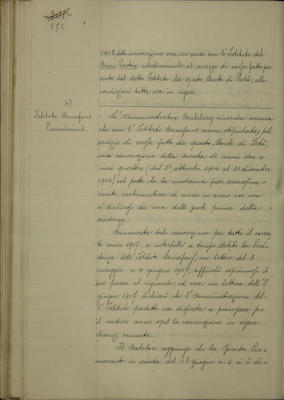 851
1908, della convenzione ora in corso con l'Istituto del
Buon Pastore relativamente al servizio di cassa fatto per
conto del detto Istituto da questo Monte di Pietà, alle
condizioni tutte ora in vigore.
b)
Istituto Buonafous
Provvedimenti.
L'Amministratore ricorda ancora
che con l'Istituto Bonafous venne stipulata, pel
servizio di cassa fatto da questo Monte di Pietà,
una convenzione della durata di anni due e
mesi quattro (dal 1° settembre 1904 al 31 dicembre
1906) col patto che la medesima fosse
di anno in anno ove non
disdetta da una delle parti prima della
scadenza.
Rinnovata tale convenzione per tutto il corren
te anno 1907, si interpellò a tempo debito la Presi
denza dell'Istituto Bonafous, con lettere del
maggio e 4 giugno 1907, affinchè esprimesse il
suo parere al riguardo, ed essa con lettera dell'
giugno 1907 dichiarò che l'Amministrazione del
l'Istituto predetto era disposta a prorogare per
il venturo anno 1908 la convenzione in vigore
dianzi
Il Relatore aggiunge che la Giunta Per
manente in seduta del 18 giugno u. s. si è di